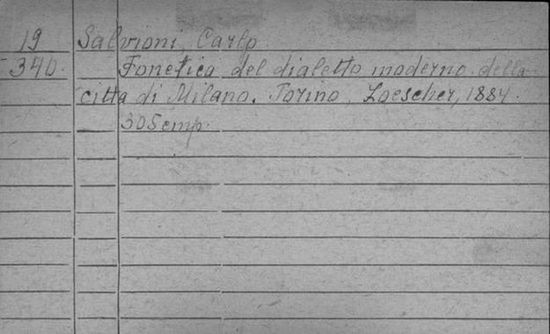 19 Salvioni, Carlo.
340. Fonetica del dialetto moderno della
città di Milano. Torino, Loescher, 1884.
305 стр.